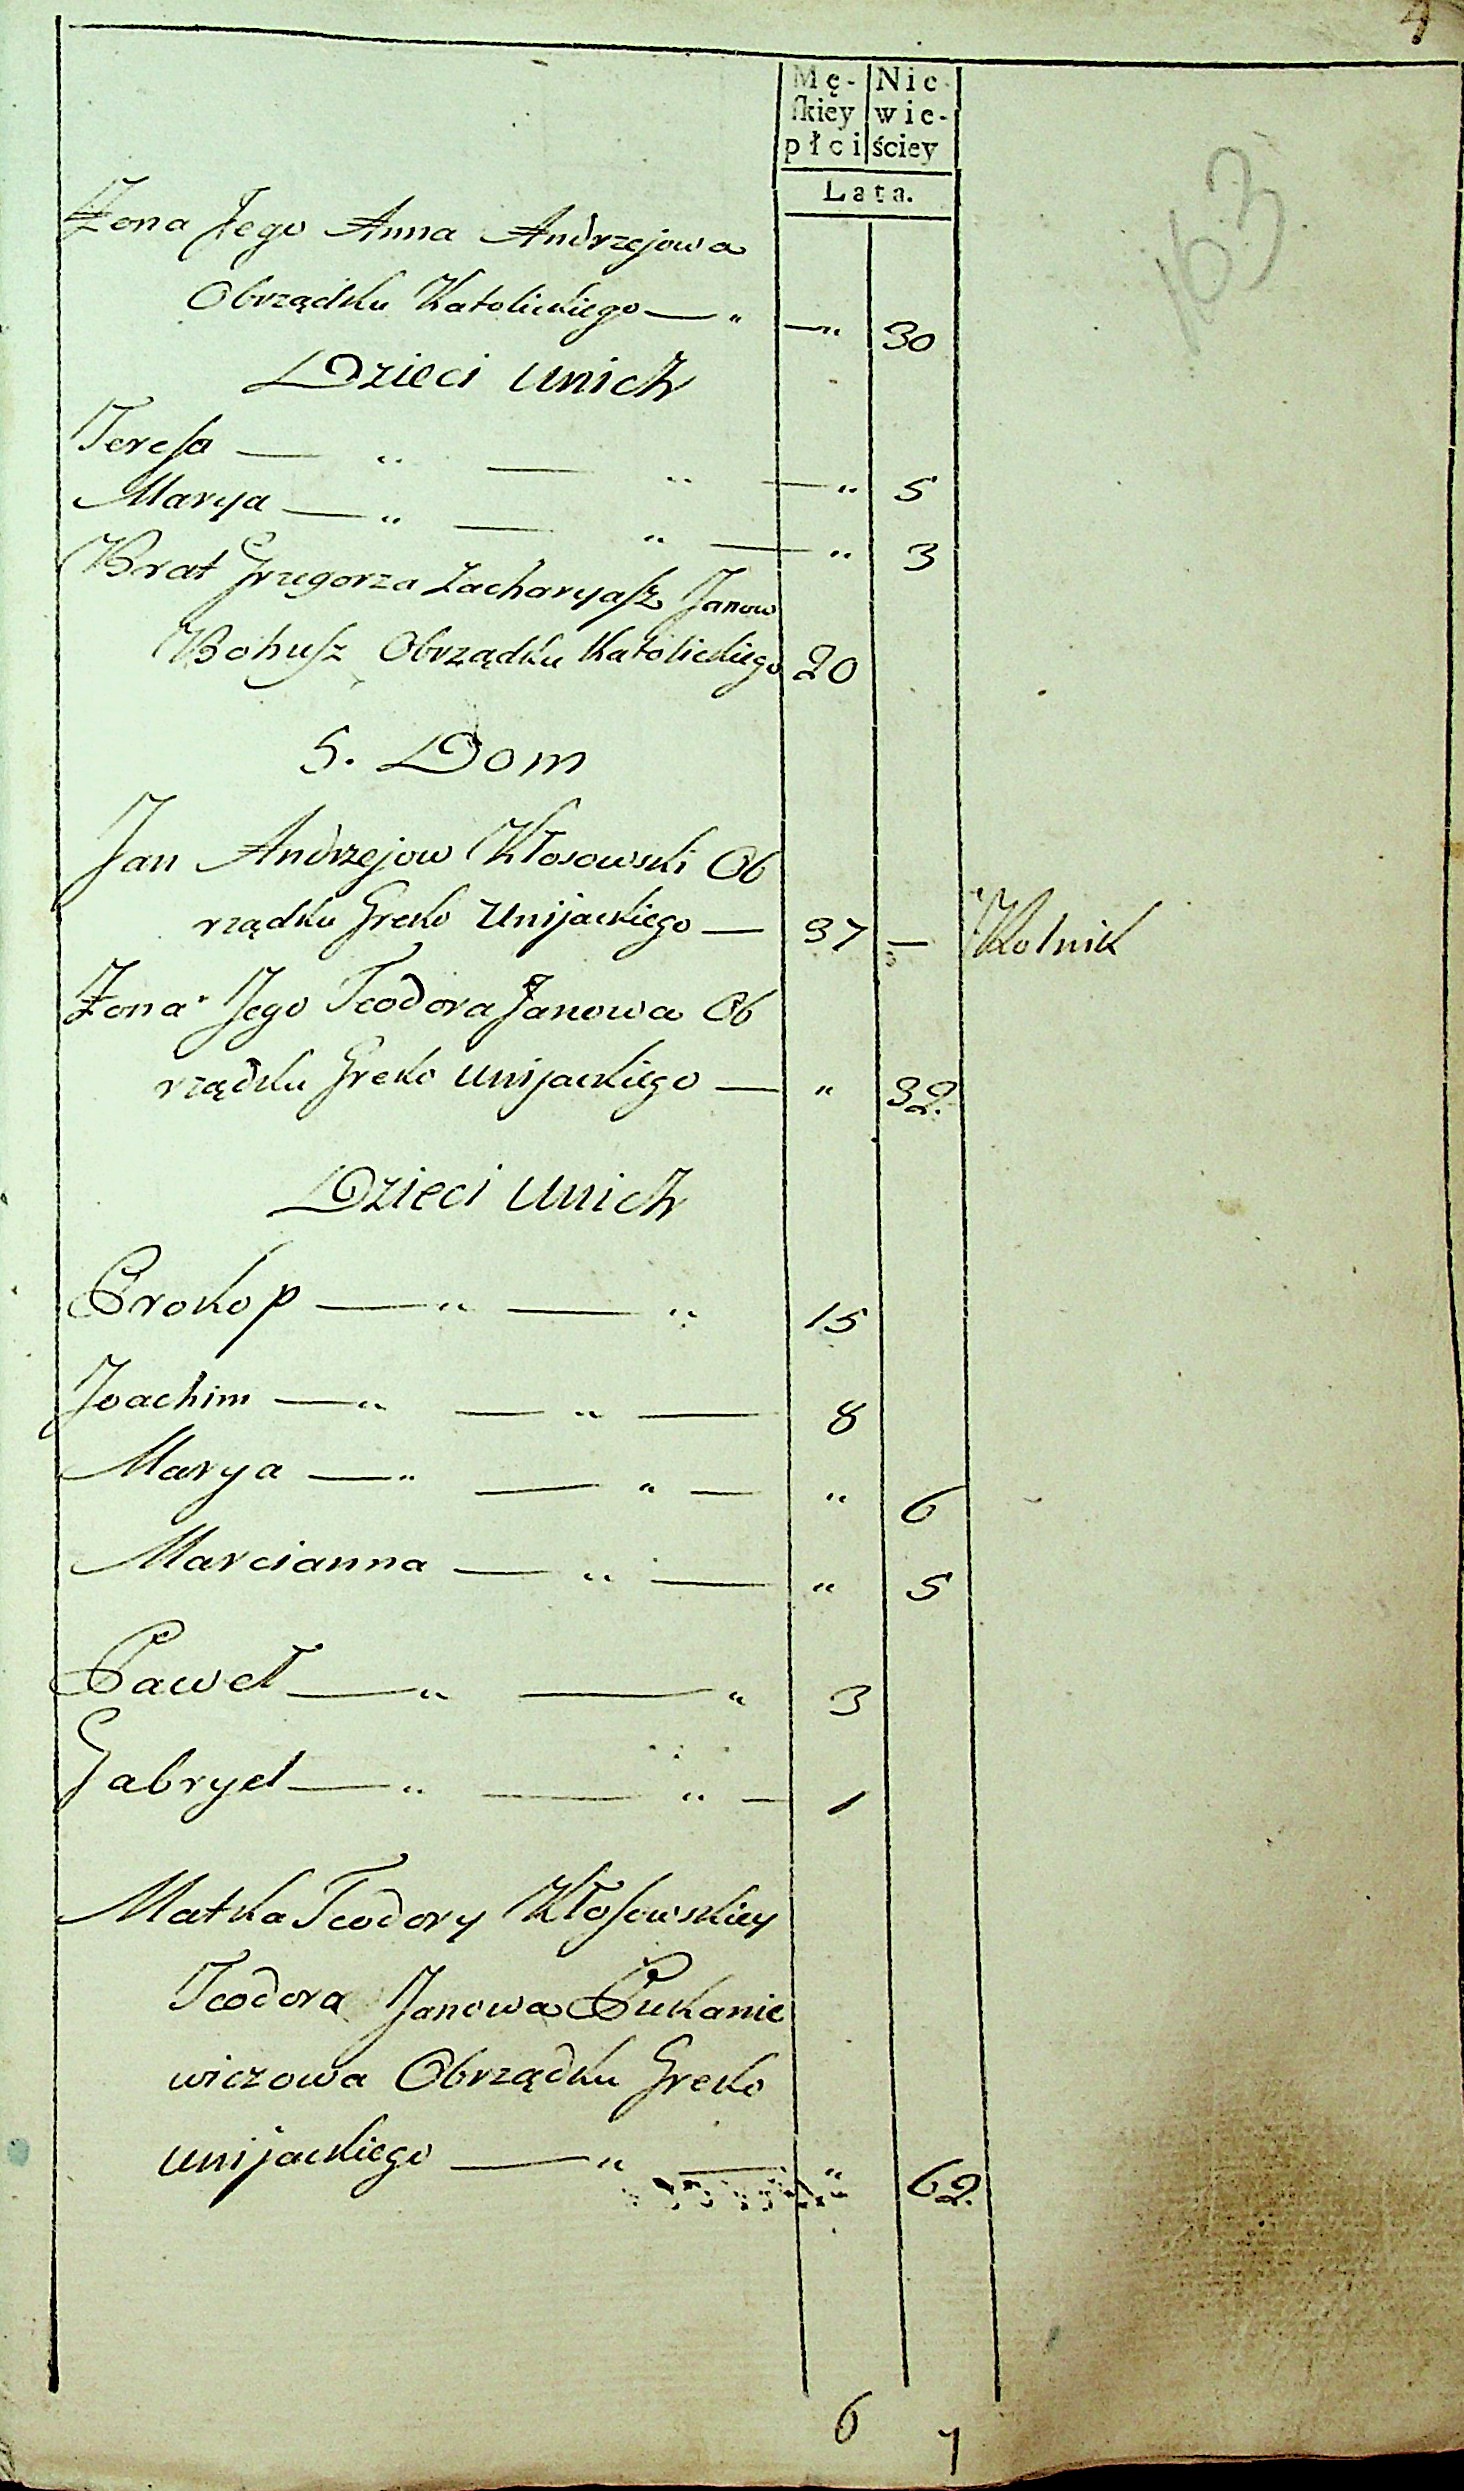 4
163
Mę- Nie-
ſkiey wie-
płci ściey
Lata.
Zona Jego Anna Andrzejowa
Obrządku Katolickiego — „ — „ 30
Dzieci unich
Teresa — „ — „ — „ 5
Marya — „ — „ — „ 3
Brat Grzegorza Zacharyasz Janow
Bohusz Obrządku Katolickiego 20
5. Dom
Jan Andrzejow Kłosowski Ob
rządku Greko Unijackiego — 37 — Rolnik
Zona Jego Teodora Janowa Ob
rządku Greko unijackiego — „ 32.
Dzieci unich
Prokop — „ — „ 15
Joachim — „ — „ — 8
Marya — „ — „ — „ 6
Marcianna — „ — „ 5
Paweł — „ — „ 3
Gabryel — „ — „ — 1
Matka Teodory Kłosowskiey
Teodora Janowa Pukanie
wiczowa Obrządku Greko
unijackiego — „ — „ 62.
6 7